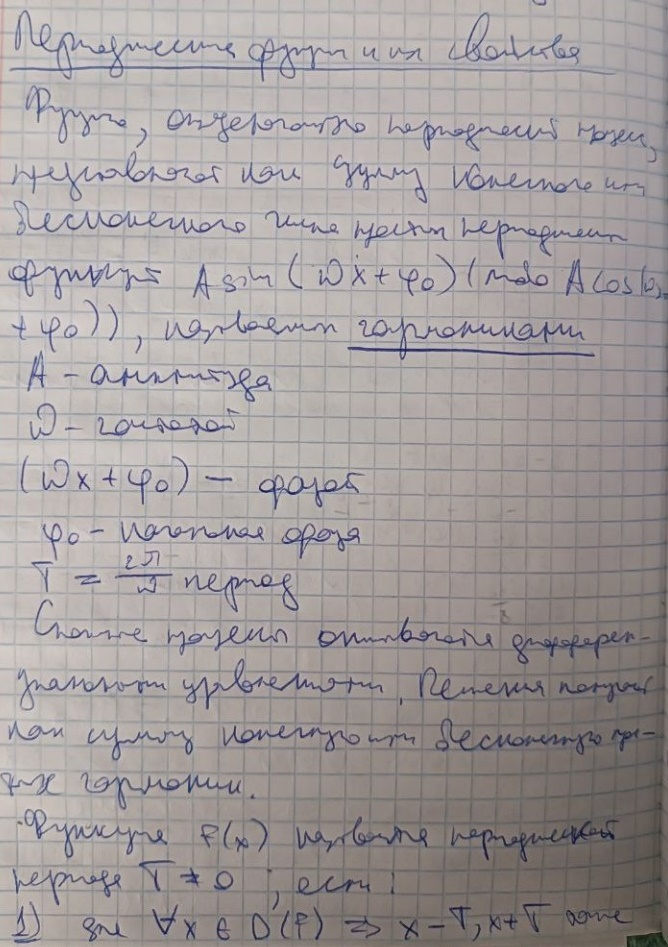 Периодические функции и их свойства
Функцию, описывающую периодический процесс,
представляют как сумму конечного или
бесконечного числа простых периодических
функций A sin(ωx + φ₀) (либо A cos(ωx
+ φ₀)), называемых гармониками
A – амплитуда
ω – частотой
(ωx + φ₀) – фазой
φ₀ – начальная фаза
T = 2π/ω период
Сложные процессы описываются дифферен-
циальными уравнениями. Решения получают
как сумму конечную или бесконечную про-
стых гармоник.
Функция f(x) называется периодической
периода T ≠ 0, если:
1) для ∀x ∈ D(f) ⇒ x – T, x + T тоже